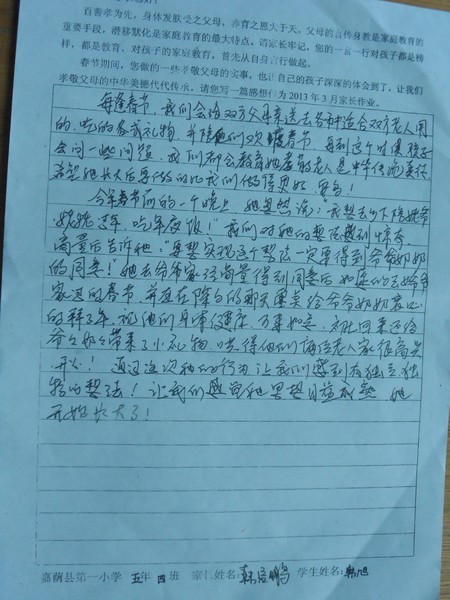 百善孝为先，身体发肤受之父母，养育之恩大于天。父母的言传身教是家庭教育的
重要手段，潜移默化是家庭教育的最大特点。请家长牢记，您的一言一行对孩子都是榜
样，都是教育。对孩子的家庭教育，首先从自身言行做起。
春节期间，您做的一些孝敬父母的实事，也让自己的孩子深深的体会到了，让我们
孝敬父母的中华美德代代传承。请您写一篇感想作为2013年3月家长作业。
每逢春节，我们会给双方父母亲送去各种适合双方老人用
的、吃的各式礼物，并陪他们欢度春节，每到这个时候孩子
会问一些问题，我们都会教育她孝敬老人是中华传统美德
希望她长大后要做的比我们做得更好
今年春节前的一个晚上，她突然说：我想去乡下陪爷爷
奶奶过年，吃年夜饭！"我们对她的想法感到惊奇，
商量后告诉他，"要想实现这个想法一定要得到爷爷奶奶
的同意！"她去爷爷家
家过的春节，并且在除夕的那天里给爷爷奶奶衷心
的拜了年，祝他们身体健康，万事如意，
爷爷奶奶带来了小礼物，老人家很高兴
开心！通过这次她的行为让我们感到有独立独
特的想法！让我们感觉她思想日益成熟，她
开始长大了！
嘉荫县第一小学 五年四班 家长姓名: 学生姓名:韩旭